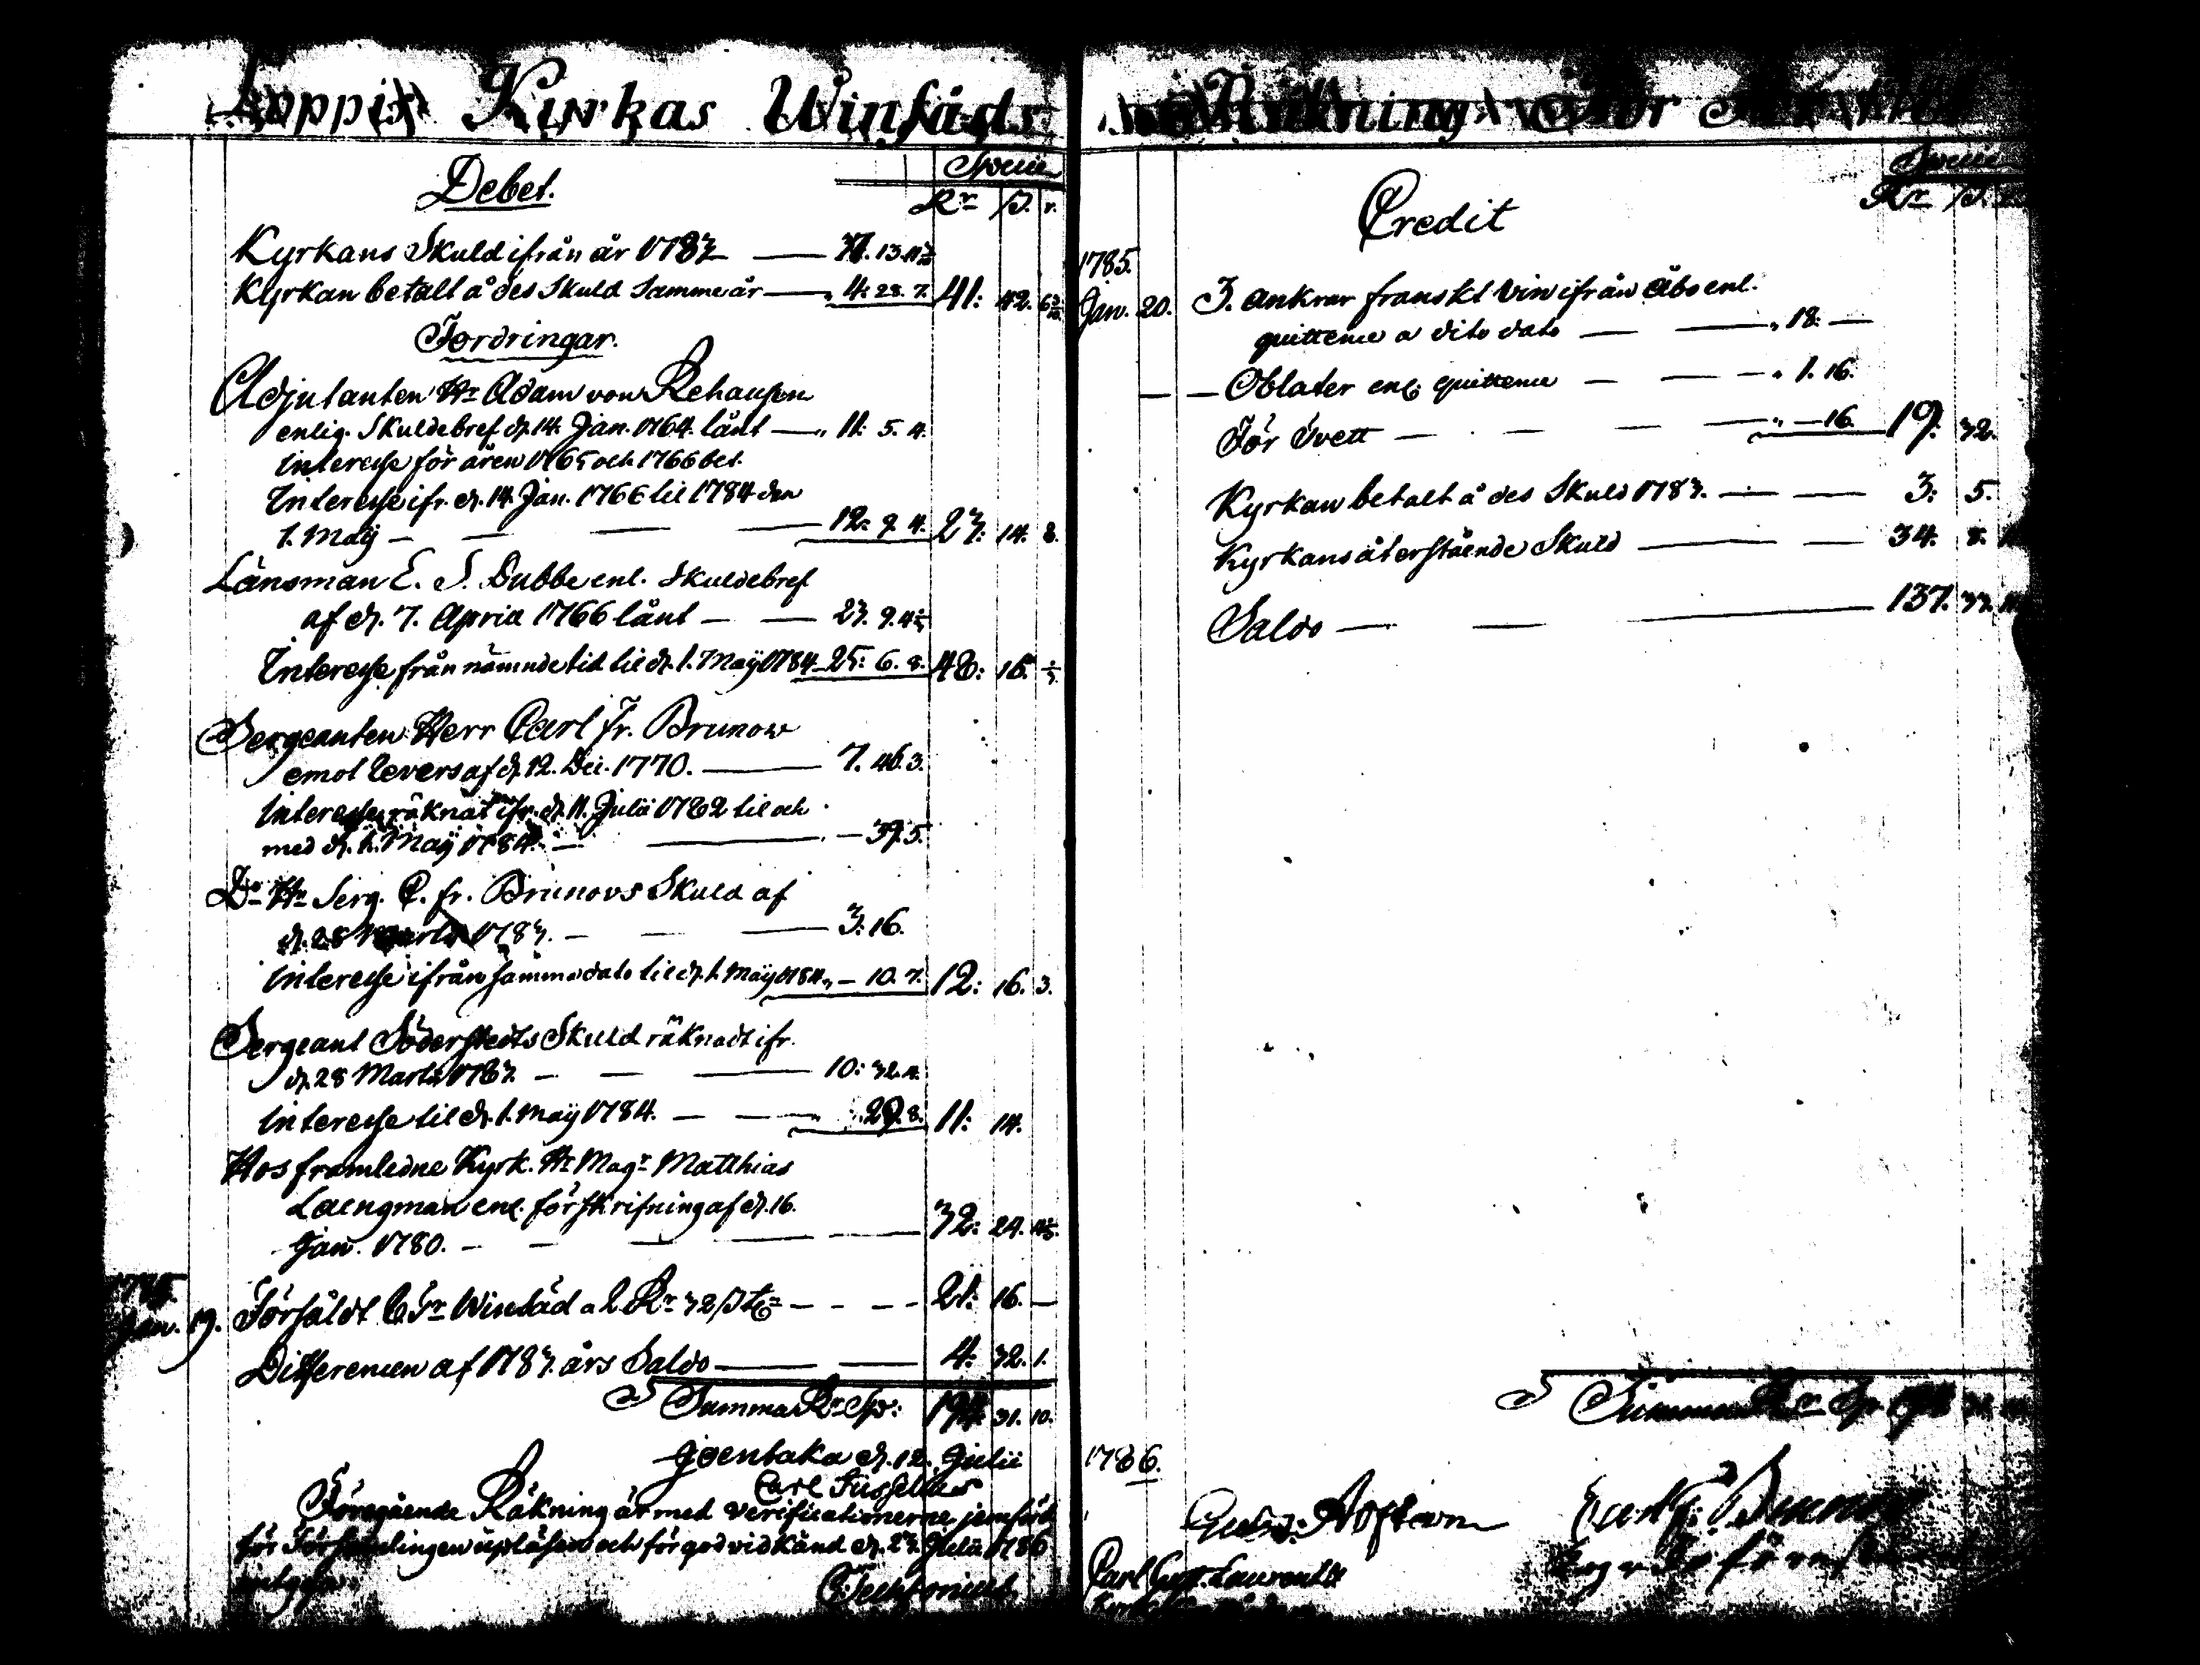 Loppis Kyrkas Winsäds
Debet.
Specie
Rr ß. r.
Kyrkans Skuld ifrån år 1783 — 37. 13. 11
Kyrkan betalt å des Skuld samma år — 4: 28. 7. 41: 42. 6
Fordringar.
Adjutanten Hr Adam von Rehausen
enlig. Skuldebref d. 14. Jan. 1764. lånt — 11: 5. 4.
Interesse för åren 1765 och 1766 bet.
Interesse ifr. d. 14. Jan. 1766 til 1784 den
1. Maij — 12: 9. 4. 23: 14. 8.
Länsman E. S. Dubbe enl. Skuldebref
af d. 7. Aprill 1766 lånt — 23. 9. 4
Interesse från nämnde tid til d. 1. Maij 1784 — 25: 6. 8. 48: 16.
Sergeanten Herr Carl Fr. Brunow
emot Revers af d. 12. Dec. 1770. — 7. 46. 3.
Interesse räknat ifr. d. 11. Julii 1782 til och
med d. 1. Maij 1784. — 39. 5.
Do Hr Serg. C. Fr. Brunovs Skuld af
d. 28 Martii 1783. — 3. 16.
Interesse ifrån samma dato til d. 1. Maij 1784 — 10. 7. 12: 16. 3.
Sergeant Söderstedts Skuld räknadt ifr.
d. 28 Martii 1783. — 10: 32. 4.
Interesse til d. 1. Maij 1784. — 29. 8. 11: 14.
Hos framledne Kyrk. Hr Magr Matthias
Laengman enl. förskrifning af d. 16.
Jan. 1780. — 32: 24.
Jan. 19. Försåldt Winsäd a 2 Rr 32 ß — 21: 16. —
Differencen af 1783. års Saldo — 4: 32. 1.
Summa Rr Sp: 194. 31. 10.
d. 12. Julii
Carl
Föregående Räkning är med verificationerne jemförd
för Församlingen upläsen och för god vidkänd d. 23. Julii 1786
Räkning För
Credit
Specie
Rr ß.
1785.
Jan. 20. 3. ankrar franskt Vin ifrån Åbo enl.
quittence a dito dato — 18: —
— — Oblater enl. quittence — 1. 16.
För Tvett — 16. 19: 32.
Kyrkan betalt å des Skuld 1783. — 3: 5.
Kyrkans återstående Skuld — 34. 8.
Saldo — 137. 33.
Summa Rr Sp
1786.
Carl Gust. Laurentii